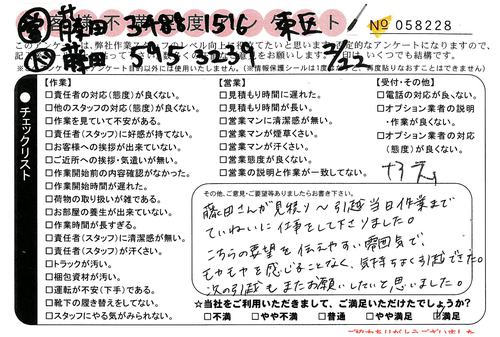 お客様不満足度アンケート
藤田 3488 1516 東区
№ 058228
藤田 595 3239 7/23
このアンケートは、弊社作業スタッフのレベル向上に役立てたいと思います。否定的なアンケートになりますので、
アンケート目的以外には使用いたしません。(※情報保護シールは1度はがすと、再度貼りなおすことはできません)
●チェックリスト
【作業】
□責任者の対応(態度)が良くない。
□他のスタッフの対応(態度)が良くない。
□作業を見ていて不安がある。
□責任者(スタッフ)に好感が持てない。
□お客様への挨拶が出来ていない。
□ご近所への挨拶・気遣いが無い。
□作業開始前の内容確認がなかった。
□作業開始時間が遅れた。
□荷物の取り扱いが雑である。
□お部屋の養生が出来ていない。
□作業時間が長すぎる。
□責任者(スタッフ)に清潔感が無い。
□責任者(スタッフ)が汗くさい。
□トラックが汚い。
□梱包資材が汚い。
□運転が不安(下手)である。
□靴下の履き替えをしてない。
□スタッフにやる気がみられない。
【営業】
□見積もり時間に遅れた。
□見積もり時間が長い。
□営業マンに清潔感が無い。
□営業マンが煙草くさい。
□営業マンが汗くさい。
□営業態度が良くない。
□営業の説明と作業が一致してない。
【受付・その他】
□電話の対応が良くない。
□オプション業者の説明
・作業が良くない。
□オプション業者の対応
(態度)が良くない。
その他、ご意見・ご要望等ありましたらお書き下さい。
藤田さんが見積り〜引越当日作業まで
ていねいに仕事をして下さりました。
こちらの要望を伝えやすい雰囲気で、
モヤモヤを感じることなく、気持ちよく引越できた。
次の引越もまたお願いしたいと思いました。
★当社をご利用いただきまして、ご満足いただけたでしょうか?
□不満 □やや不満 □普通 □やや満足 ☑満足
ご協力ありがとうございました